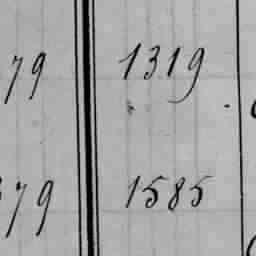 79 1319
79 1585